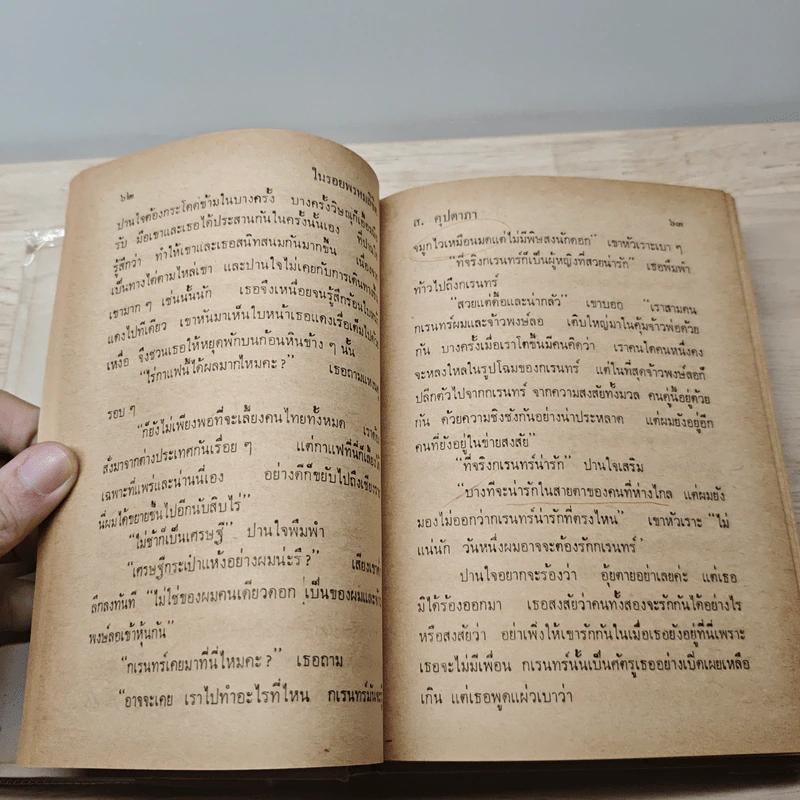 ๖๒
ในรอยพรหมลิขิ
ปานใจต้องกระโดดข้ามในบางครั้ง บางครั้งวิษณุก็เอื้อมมือ
รับ มือเขาและเธอได้ประสานกันในครั้งนั้นเอง ที่ปานใจ
รู้สึกว่า ทำให้เขาและเธอสนิทสนมกันมากขึ้น เนื่องจาก
เป็นทางไต่ตามไหล่เขา และปานใจไม่เคยกับการเดินทาง
เขามาก ๆ เช่นนั้นนัก เธอจึงเหนื่อยจนรู้สึกร้อน
แดงไปทีเดียว เขาหันมาเห็นใบหน้าเธอแดงเรื่อเต็มไปด้วย
เหงื่อ จึงชวนเธอให้หยุดพักบนก้อนหินข้าง ๆ นั้น
“ไร่กาแฟนี้ได้ผลมากไหมคะ ?” เธอถาม
รอบ ๆ
“ก็ยังไม่เพียงพอที่จะเลี้ยงคนไทยทั้งหมด เรา
สั่งมาจากต่างประเทศกันเรื่อย ๆ แต่กาแฟที่นี่ก็เลี้ยง
เฉพาะที่แพร่และน่านนี่เอง อย่างดีก็ขยับไปถึงเชียงราย
นี่ผมได้ขยายขึ้นไปอีกนับสิบไร่”
“ไม่ช้าก็เป็นเศรษฐี” ปานใจพึมพำ
“เศรษฐีกระเป๋าแห้งอย่างผมน่ะรึ ?” เสียงเขา
ลึกลงทันที “ไม่ใช่ของผมคนเดียวดอก เป็นของผมและจ้าว
พงษ์ลอเข้าหุ้นกัน”
“กเรนทร์เคยมาที่นี่ไหมคะ ?” เธอถาม
“อาจจะเคย เราไปทำอะไรที่ไหน กเรนทร์มัน
ส. คุปตาภา
๖๓
จมูกไวเหมือนมดแต่ไม่มีพิษสงนักดอก” เขาหัวเราะเบา ๆ
“ที่จริงกเรนทร์ก็เป็นผู้หญิงที่สวยน่ารัก” เธอพึมพำ
ท้าวไปถึงกเรนทร์
“สวยแต่ดื้อและน่ากลัว” เขาบอก “เราสามคน
กเรนทร์ผมและจ้าวพงษ์ลอ เติบใหญ่มาในคุ้มจ้าวพ่อด้วย
กัน บางครั้งเมื่อเราโตขึ้นมีคนคิดว่า เราคนใดคนหนึ่งคง
จะหลงใหลในรูปโฉมของกเรนทร์ แต่ในที่สุดจ้าวพงษ์ลอก็
ปลีกตัวไปจากกเรนทร์ จากความสงสัยทั้งมวล คนคู่นี้อยู่ด้วย
กัน ด้วยความชิงชังกันอย่างน่าประหลาด แต่ผมยังอยู่อีก
คนที่ยังอยู่ในข่ายสงสัย”
“ที่จริงกเรนทร์น่ารัก” ปานใจเสริม
“บางทีจะน่ารักในสายตาของคนที่ห่างไกล แต่ผมยัง
มองไม่ออกว่ากเรนทร์น่ารักที่ตรงไหน” เขาหัวเราะ “ไม่
แน่นัก วันหนึ่งผมอาจจะต้องรักกเรนทร์”
ปานใจอยากจะร้องว่า อุ้ยตายอย่าเลยค่ะ แต่เธอ
มิได้ร้องออกมา เธอสงสัยว่าคนทั้งสองจะรักกันได้อย่างไร
หรือสงสัยว่า อย่าเพิ่งให้เขารักกันในเมื่อเธอยังอยู่ที่นี่เพราะ
เธอจะไม่มีเพื่อน กเรนทร์นั้นเป็นศัตรูเธออย่างเปิดเผยเหลือ
เกิน แต่เธอพูดแผ่วเบาว่า